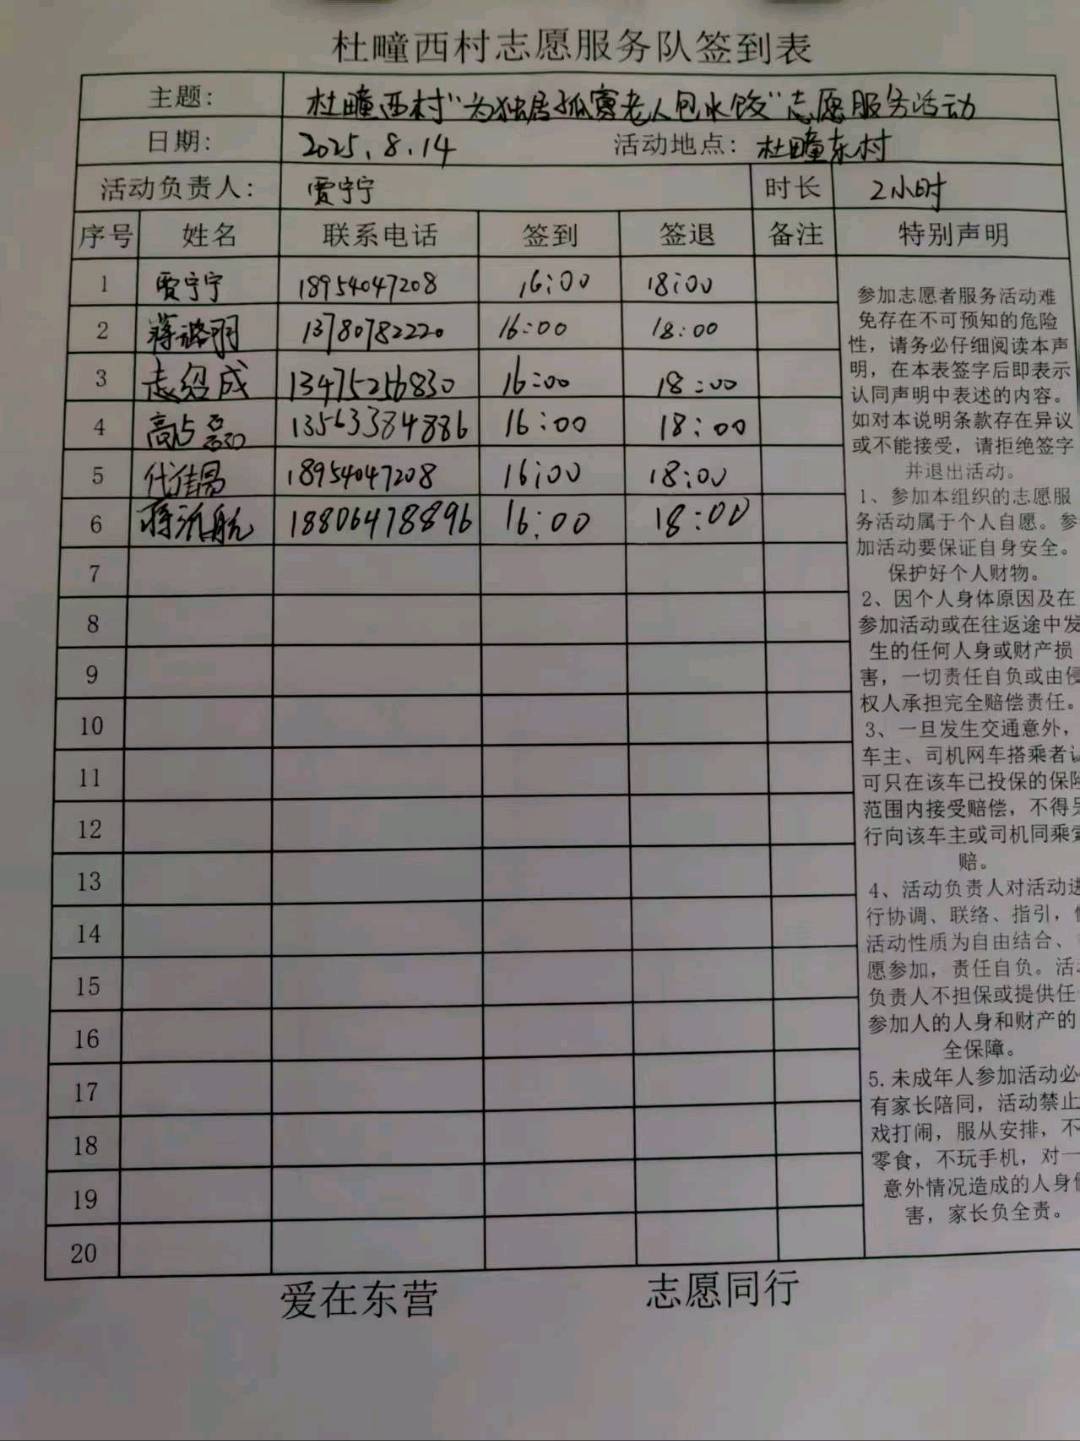 杜疃西村志愿服务队签到表
主题： 杜疃西村“为独居孤寡老人包水饺”志愿服务活动
日期： 2025.8.14 活动地点：杜疃东村
活动负责人： 贾宁宁 时长 2小时
序号 姓名 联系电话 签到 签退 备注 特别声明
1 贾宁宁 18954047208 16:00 18:00
2 蒋璐羽 13780782220 16:00 18:00
3 绍成 13475256830 16:00 18:00
4 高占磊 13563384886 16:00 18:00
5 代佳昌 18954047208 16:00 18:00
6 蒋 航 18806478896 16:00 18:00
7
8
9
10
11
12
13
14
15
16
17
18
19
20
参加志愿者服务活动难
免存在不可预知的危险
性，请务必仔细阅读本声
明，在本表签字后即表示
认同声明中表述的内容。
如对本说明条款存在异议
或不能接受，请拒绝签字
并退出活动。
1、参加本组织的志愿服
务活动属于个人自愿。参
加活动要保证自身安全。
保护好个人财物。
2、因个人身体原因及在
参加活动或在往返途中发
生的任何人身或财产损
害，一切责任自负或由侵
权人承担完全赔偿责任。
3、一旦发生交通意外，
车主、司机网车搭乘者
可只在该车已投保的保险
范围内接受赔偿，不得另
行向该车主或司机同乘索
赔。
4、活动负责人对活动进
行协调、联络、指引，
活动性质为自由结合、
愿参加，责任自负。活
负责人不担保或提供任
参加人的人身和财产的
全保障。
5.未成年人参加活动必
有家长陪同，活动禁止
戏打闹，服从安排，不
零食，不玩手机，对一
意外情况造成的人身
害，家长负全责。
爱在东营 志愿同行